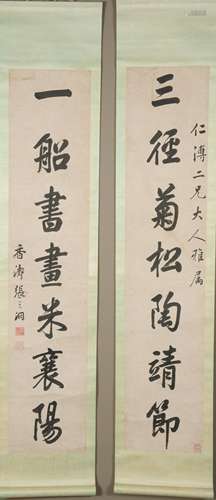 三徑菊松陶靖節
仁溥二兄大人雅屬
一船書畫米襄陽
香濤張之洞